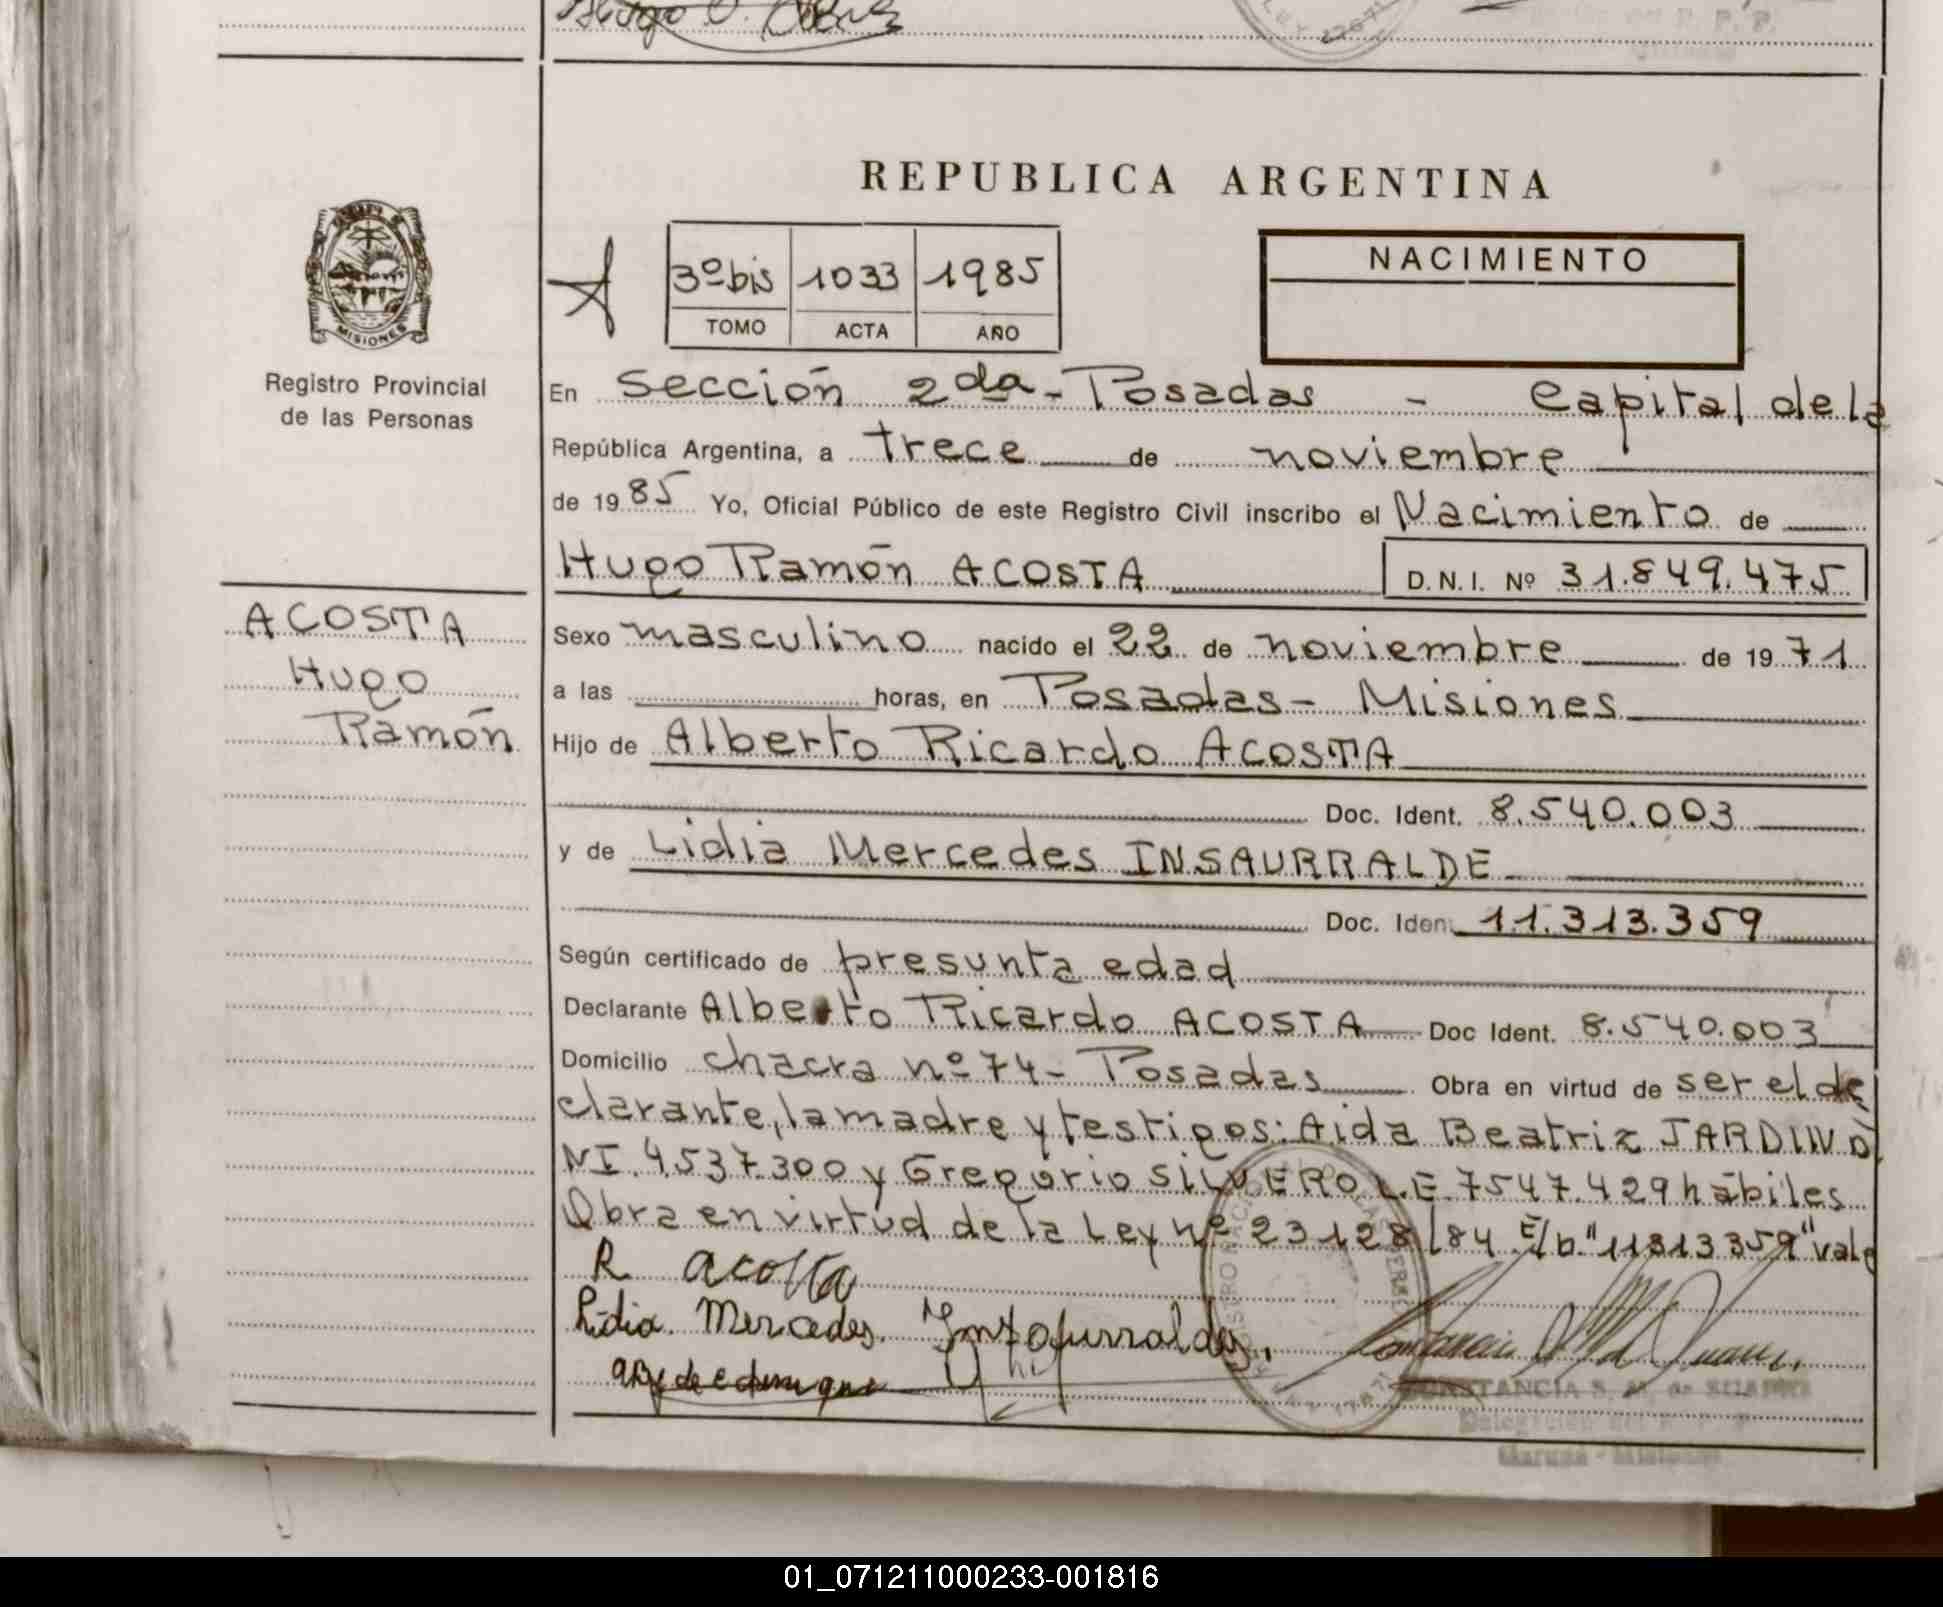 REPUBLICA ARGENTINA
MISIONES
Registro Provincial
de las Personas
3º bis 1033 1985
TOMO ACTA AÑO
NACIMIENTO
En Sección 2da - Posadas - Capital de la
República Argentina, a trece de noviembre
de 1985 Yo, Oficial Público de este Registro Civil inscribo el Nacimiento de
Hugo Ramón ACOSTA D.N.I. Nº 31.849.475
ACOSTA
Hugo
Ramón
Sexo masculino nacido el 22 de noviembre de 1971
a las horas, en Posadas - Misiones
Hijo de Alberto Ricardo ACOSTA
Doc. Ident. 8.540.003
y de Lidia Mercedes INSAURRALDE
Doc. Iden. 11.313.359
Según certificado de presunta edad
Declarante Alberto Ricardo ACOSTA Doc Ident. 8.540.003
Domicilio chacra nº 74 - Posadas Obra en virtud de ser el de
clarante, la madre y testigos: Aida Beatriz JARDIN D
NI. 4.537.300 y Gregorio SILVERO L.E. 7547.429 hábiles
Obra en virtud de la Ley nº 23128/84 E/b. "11313359" vale
R acosta
Lidia. Mercedes.
CONSTANCIA S. M. de SUAREZ
01_071211000233-001816